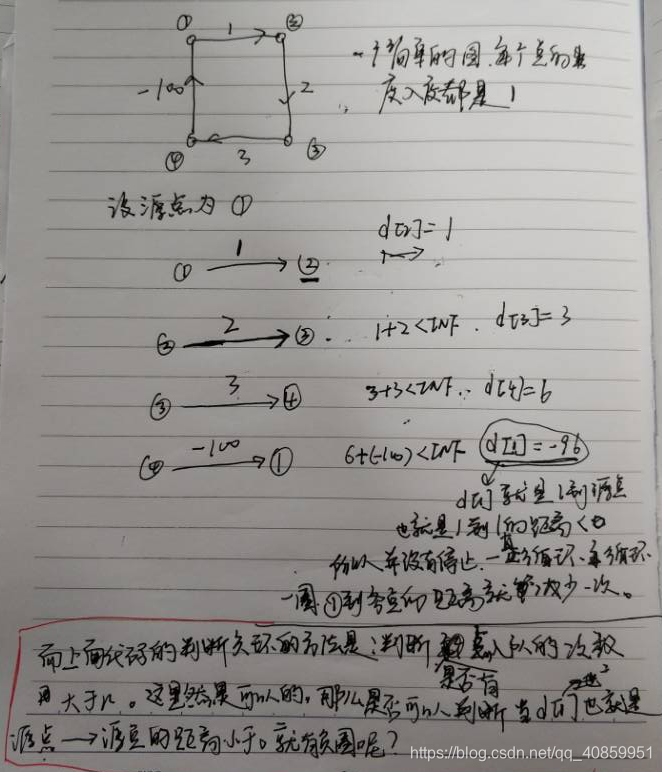 ① 1 ②
一个简单的图,每个点的出
度入度都是1
-100 2
④ 3 ③
设源点为①
d[2]=1
① 1 ②
② 2 ③ 1+2<INF. d[3]=3
③ 3 ④ 3+3<INF. d[4]=6
④ -100 ① 6+(-100)<INF d[1]=-96
d[1]就是1到源点
也就是1到1的距离<0
所以并没有停止,一直循环,每循环
一圈①到各点的距离就减少一次。
而上面代码的判断负环的方法是:判断 点入队的次数
是否有
大于n。这里当然是可以的,那么是否可以判断当d[1]也就是
源点→源点的距离小于0就有负圈呢?
https://blog.csdn.net/qq_40859951